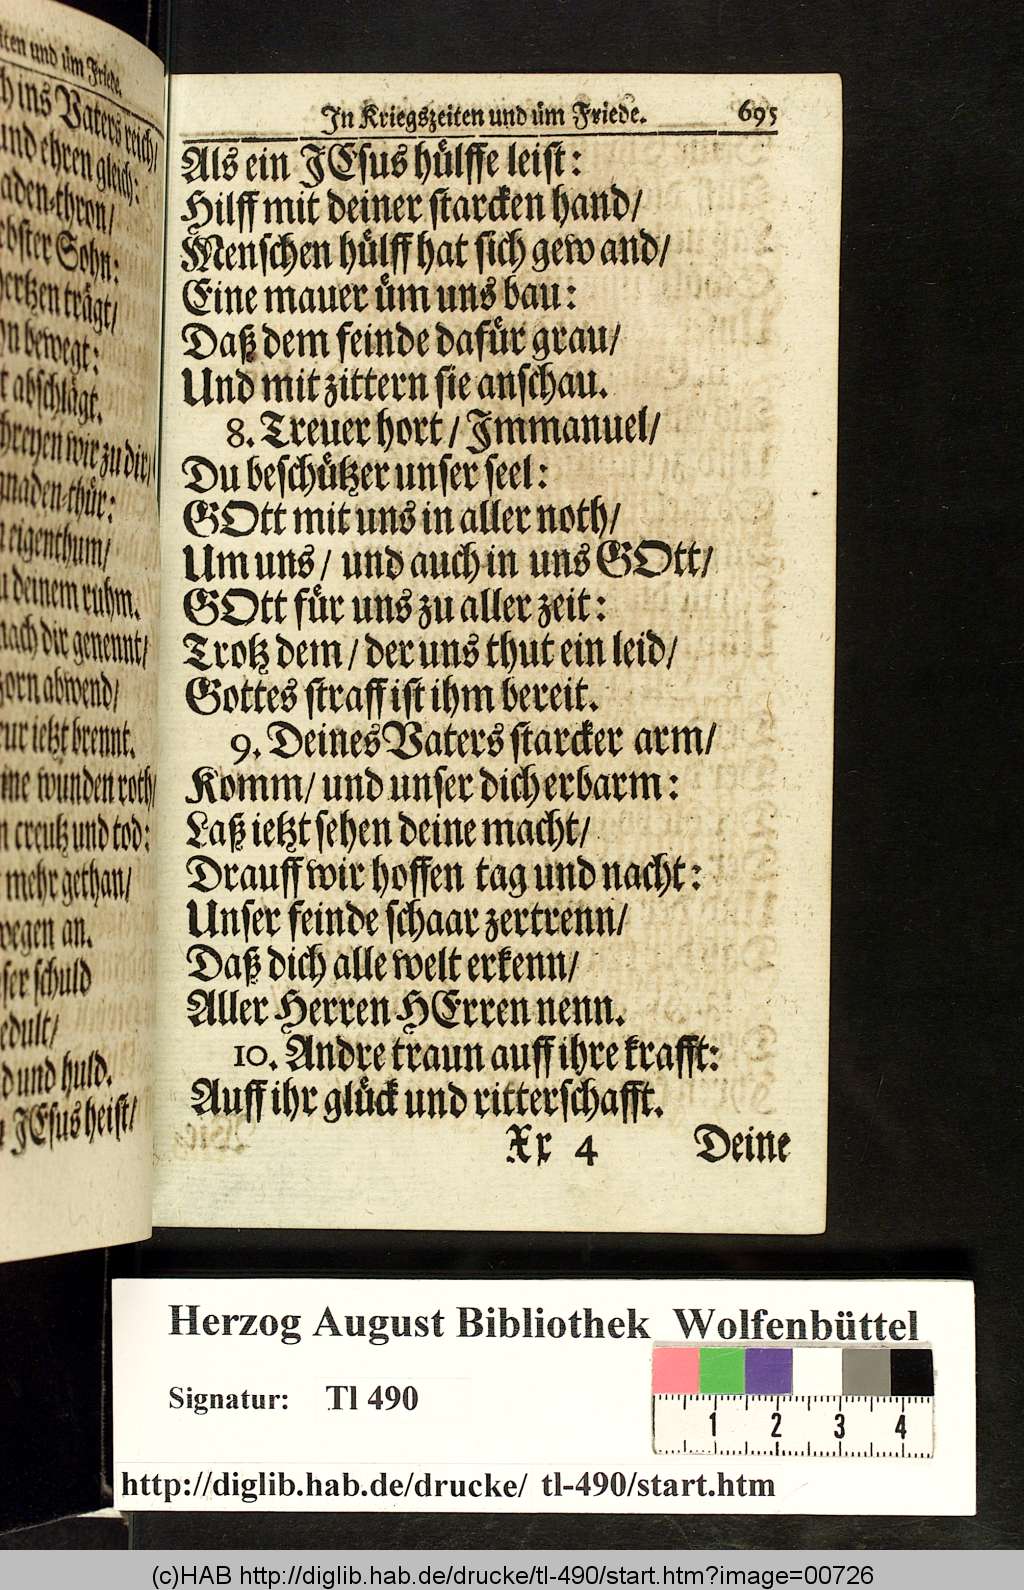 iten und üm Friede.
ch ins Vaters reich/
und ehren gleich:
aden-thron/
ebster Sohn:
hertzen trägt/
bewegt:
abschlägt.
schreyen wir zu dir/
gnaden-thür:
eigenthum/
deinem ruhm.
nach dir genennt/
zorn abwend/
ietzt brennt.
wunden roth/
creutz und tod:
mehr gethan/
wegen an.
schuld
edult/
und huld.
JEsus heist/
In Kriegszeiten und üm Friede. 695
Als ein JEsus hülffe leist:
Hilff mit deiner starcken hand/
Menschen hülff hat sich gew and/
Eine mauer üm uns bau:
Daß dem feinde dafür grau/
Und mit zittern sie anschau.
8. Treuer hort/ Immanuel/
Du beschützer unser seel:
GOtt mit uns in aller noth/
Um uns/ und auch in uns GOtt/
GOtt für uns zu aller zeit:
Trotz dem/ der uns thut ein leid/
Gottes straff ist ihm bereit.
9. Deines Vaters starcker arm/
Komm/ und unser dich erbarm:
Laß ietzt sehen deine macht/
Drauff wir hoffen tag und nacht:
Unser feinde schaar zertrenn/
Daß dich alle welt erkenn/
Aller Herren HErren nenn.
10. Andre traun auff ihre krafft:
Auff ihr glück und ritterschafft.
Xx 4 Deine
Herzog August Bibliothek Wolfenbüttel
Signatur: Tl 490
1 2 3 4
http://diglib.hab.de/drucke/ tl-490/start.htm
(c)HAB http://diglib.hab.de/drucke/tl-490/start.htm?image=00726